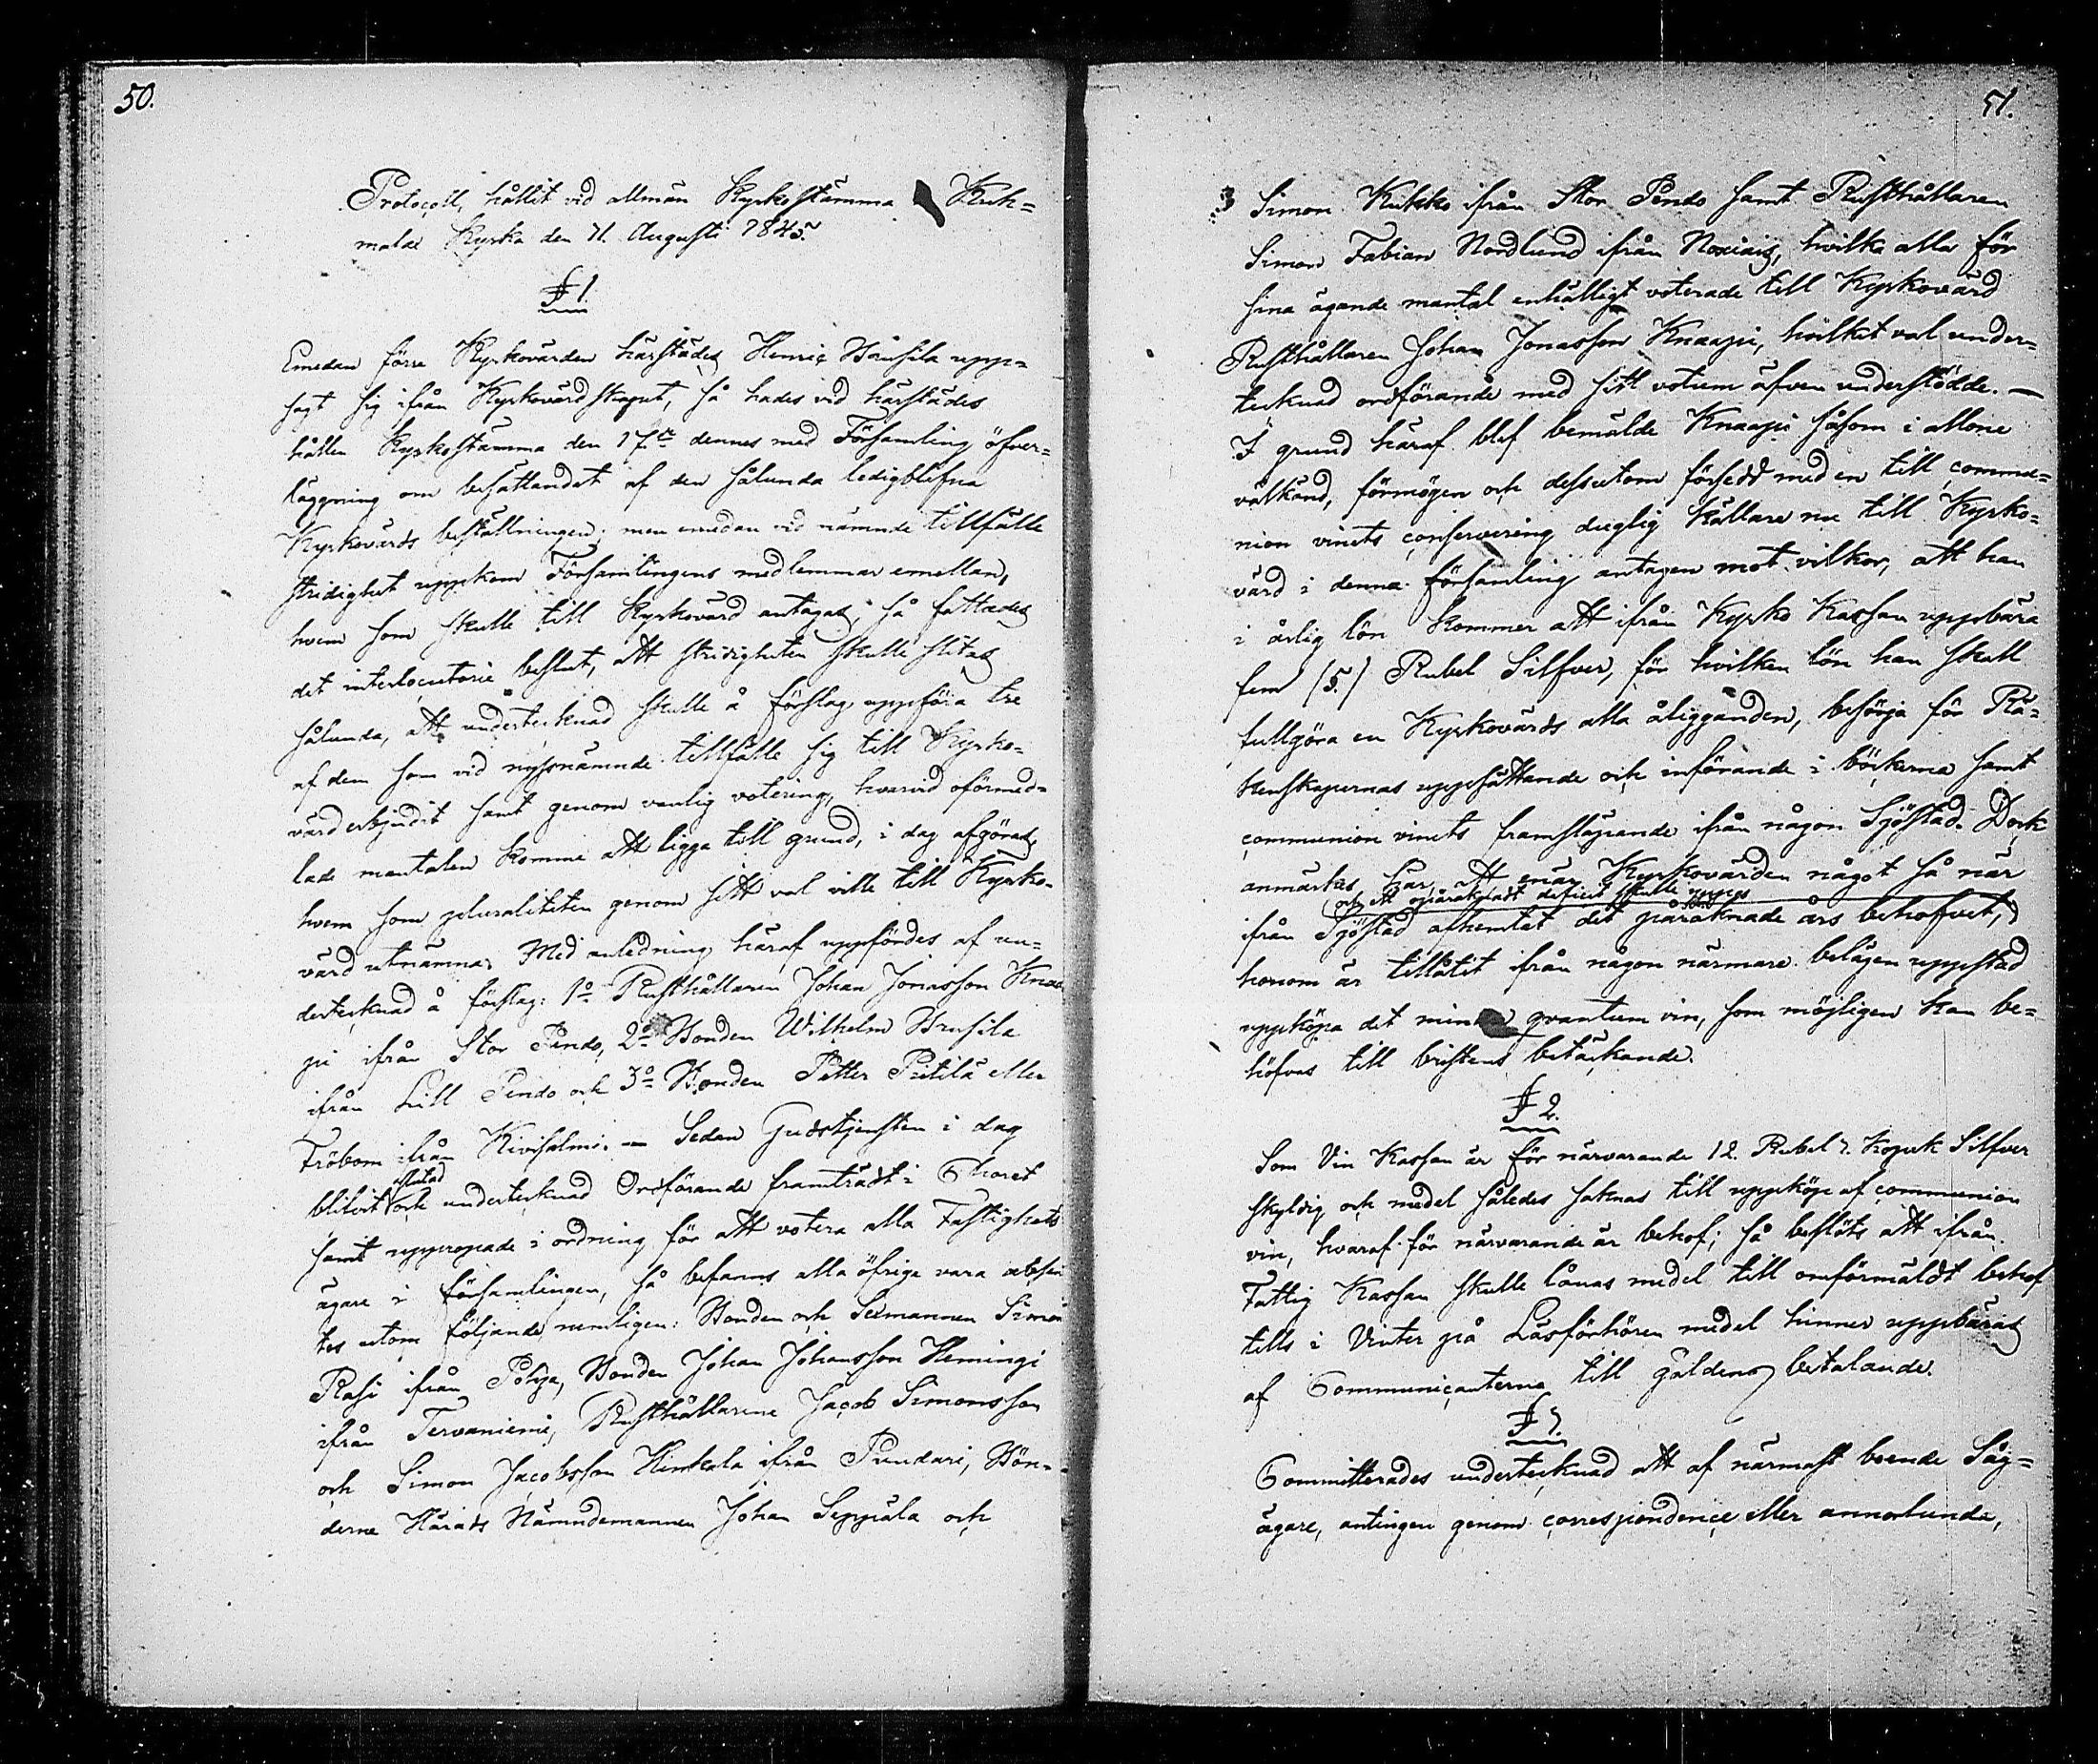 50.
Protocoll, hållit vid allmän Kyrkostämma i Kuh=
malax Kyrka den 31. Augusti 1845.
§ 1.
Emedan förre Kyrkovärden härstädes Henric Hänsila upp=
sagt sig ifrån Kyrkovärdskapet, så hades vid härstädes
hållen Kyrkostämma den 17de dennes med Församling öfver=
läggning om besättandet af den sålunda ledigblefna
Kyrkovärds beställningen; men emedan vid nämnde tillfälle
stridighet uppkom Församlingens medlemmar emellan,
hvem som skulle till Kyrkovärd antagas, så fattades
det interlocutorie beslut, att stridigheten skulle slitas
sålunda, att undertecknad skulle å förslag uppföra tre
af dem som vid nyssnämnde tillfälle sig till Kyrko=
värd erbjudit samt genom vanlig votering, hvarvid oförmed=
lade mantalen komme att ligga till grund, i dag afgöras,
hvem som pluraliteten genom sitt val ville till Kyrko=
värd utnämna. Med anledning häraf uppfördes af un=
dertecknad å förslag: 1o Rusthållaren Johan Jonasson Knaa
pi ifrån Stor Pendo, 2o Bonden Wilhelm Brusila
ifrån Lill Pendo och 3o Bonden Petter Pitilä eller
Fröbom ifrån Kivisalmi. — Sedan Gudstjensten i dag
slutad
blifvit och undertecknad Ordförande framträdt i Choret
samt uppropade i ordning för att votera alla Fastighets
ägare i församlingen, så befanns alla öfriga vara absen
tes utom följande nemligen: Bonden och Sexmannen Simon
Rasi ifrån Pohja, Bonden Johan Johansson Hemingi
ifrån Tervaniemi, Rusthållarene Jacob Simonsson
och Simon Jacobsson Hinkala ifrån Pundari, Bön=
derne Härads Nämndemannen Johan Seppälä och
51.
Simon Kukko ifrån Stor Pendo samt Rusthållaren
Simon Fabian Nordlund ifrån Noxiais, hvilka alla för
sina ägande mantal enhälligt voterade till Kyrkovärd
Rusthållaren Johan Jonasson Knaapi, hvilket val under=
tecknad ordförande med sitt votum äfven understödde. —
I grund häraf blef bemälde Knaapi såsom i allone
välkänd, förmögen och dessutom försedd med en till commu=
nion vinets conservering duglig källare nu till Kyrko=
värd i denna församling antagen mot vilkor, att han
i årlig lön kommer att ifrån Kyrko Kassan uppbära
fem (5.) Rubel Silfver, för hvilken lön han skall
fullgöra en Kyrkovärds alla åligganden, besörja för Rä=
kenskapernas uppsättande och införande i böckerna samt
communion vinets framslägtande ifrån någon Sjöstad. Dock
anmärkes här, att enär Kyrkovärden något så när
och ett oparäknadt deficit skulle uppstå
ifrån Sjöstad afhemtat det påräknade års behofvet,
honom är tillåtit ifrån någon närmare belägen uppstad
uppköpa det mindre qvantum vin, som möjligen kan be=
höfvas till bristens betäckande.
§ 2.
Som Vin Kassan är för närvarande 12. Rubel 7. Kopek Silfver
skyldig och medel således saknas till uppköp af communion
vin, hvaraf för närvarande är behof; så beslöts att ifrån
Fattig Kassan skulle lånas medel till omförmäldt behof
tills i Vinter på Läsförhören medel hinner uppbäras
af Communicanterne till gäldens betalande.
§ 3.
Committerades undertecknad att af närmast boende Såg=
ägare, antingen genom correspondence eller annorlunda,